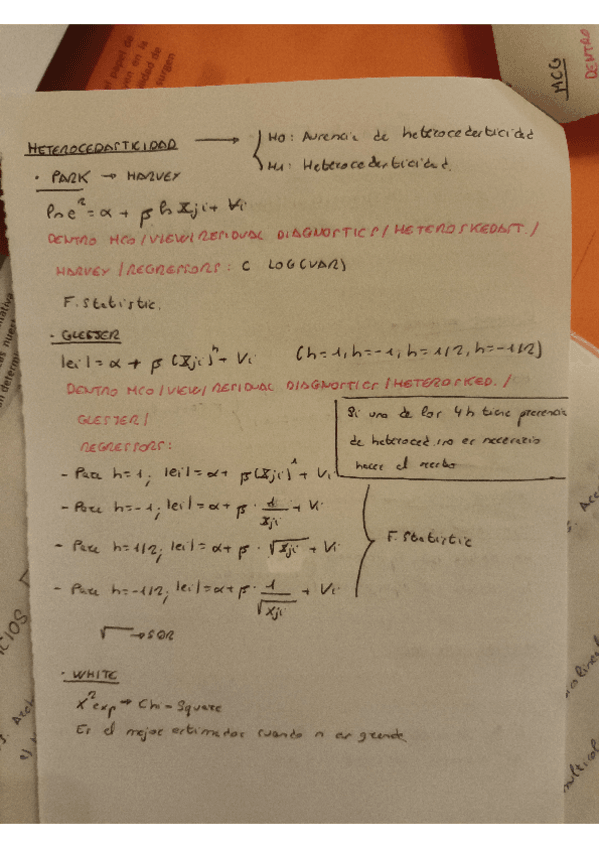 papel de
ven en la
idad de
surgen
MCG
DENTRO
HETEROCEDASTICIDAD → H0: Ausencia de heterocedasticidad
H1: Heterocedasticidad.
· PARK → HARVEY
ln e² = α + β ln Xji + Vi
DENTRO MCO/VIEW/RESIDUAL DIAGNOSTICS/HETEROSKEDAST./
HARVEY/REGRESSORS: C LOG(VAR)
F. Statistic.
· GLESJER
|ei| = α + β (Xji)ʰ + Vi (h=1, h=-1, h=1/2, h=-1/2)
DENTRO MCO/VIEW/RESIDUAL DIAGNOSTICS/HETEROSKED./
GLESJER/
REGRESSORS:
Si uno de los 4 h tiene presencia
de heteroced. no es necesario
hacer el resto
- Para h=1; |ei| = α + β (Xji)¹ + Vi
- Para h=-1; |ei| = α + β · 1/Xji + Vi
- Para h=1/2; |ei| = α + β · √Xji + Vi
- Para h=-1/2; |ei| = α + β · 1/√Xji + Vi
F. Statistic
√ → SQR
· WHITE
X² exp → Chi-Square
Es el mejor estimador cuando n es grande